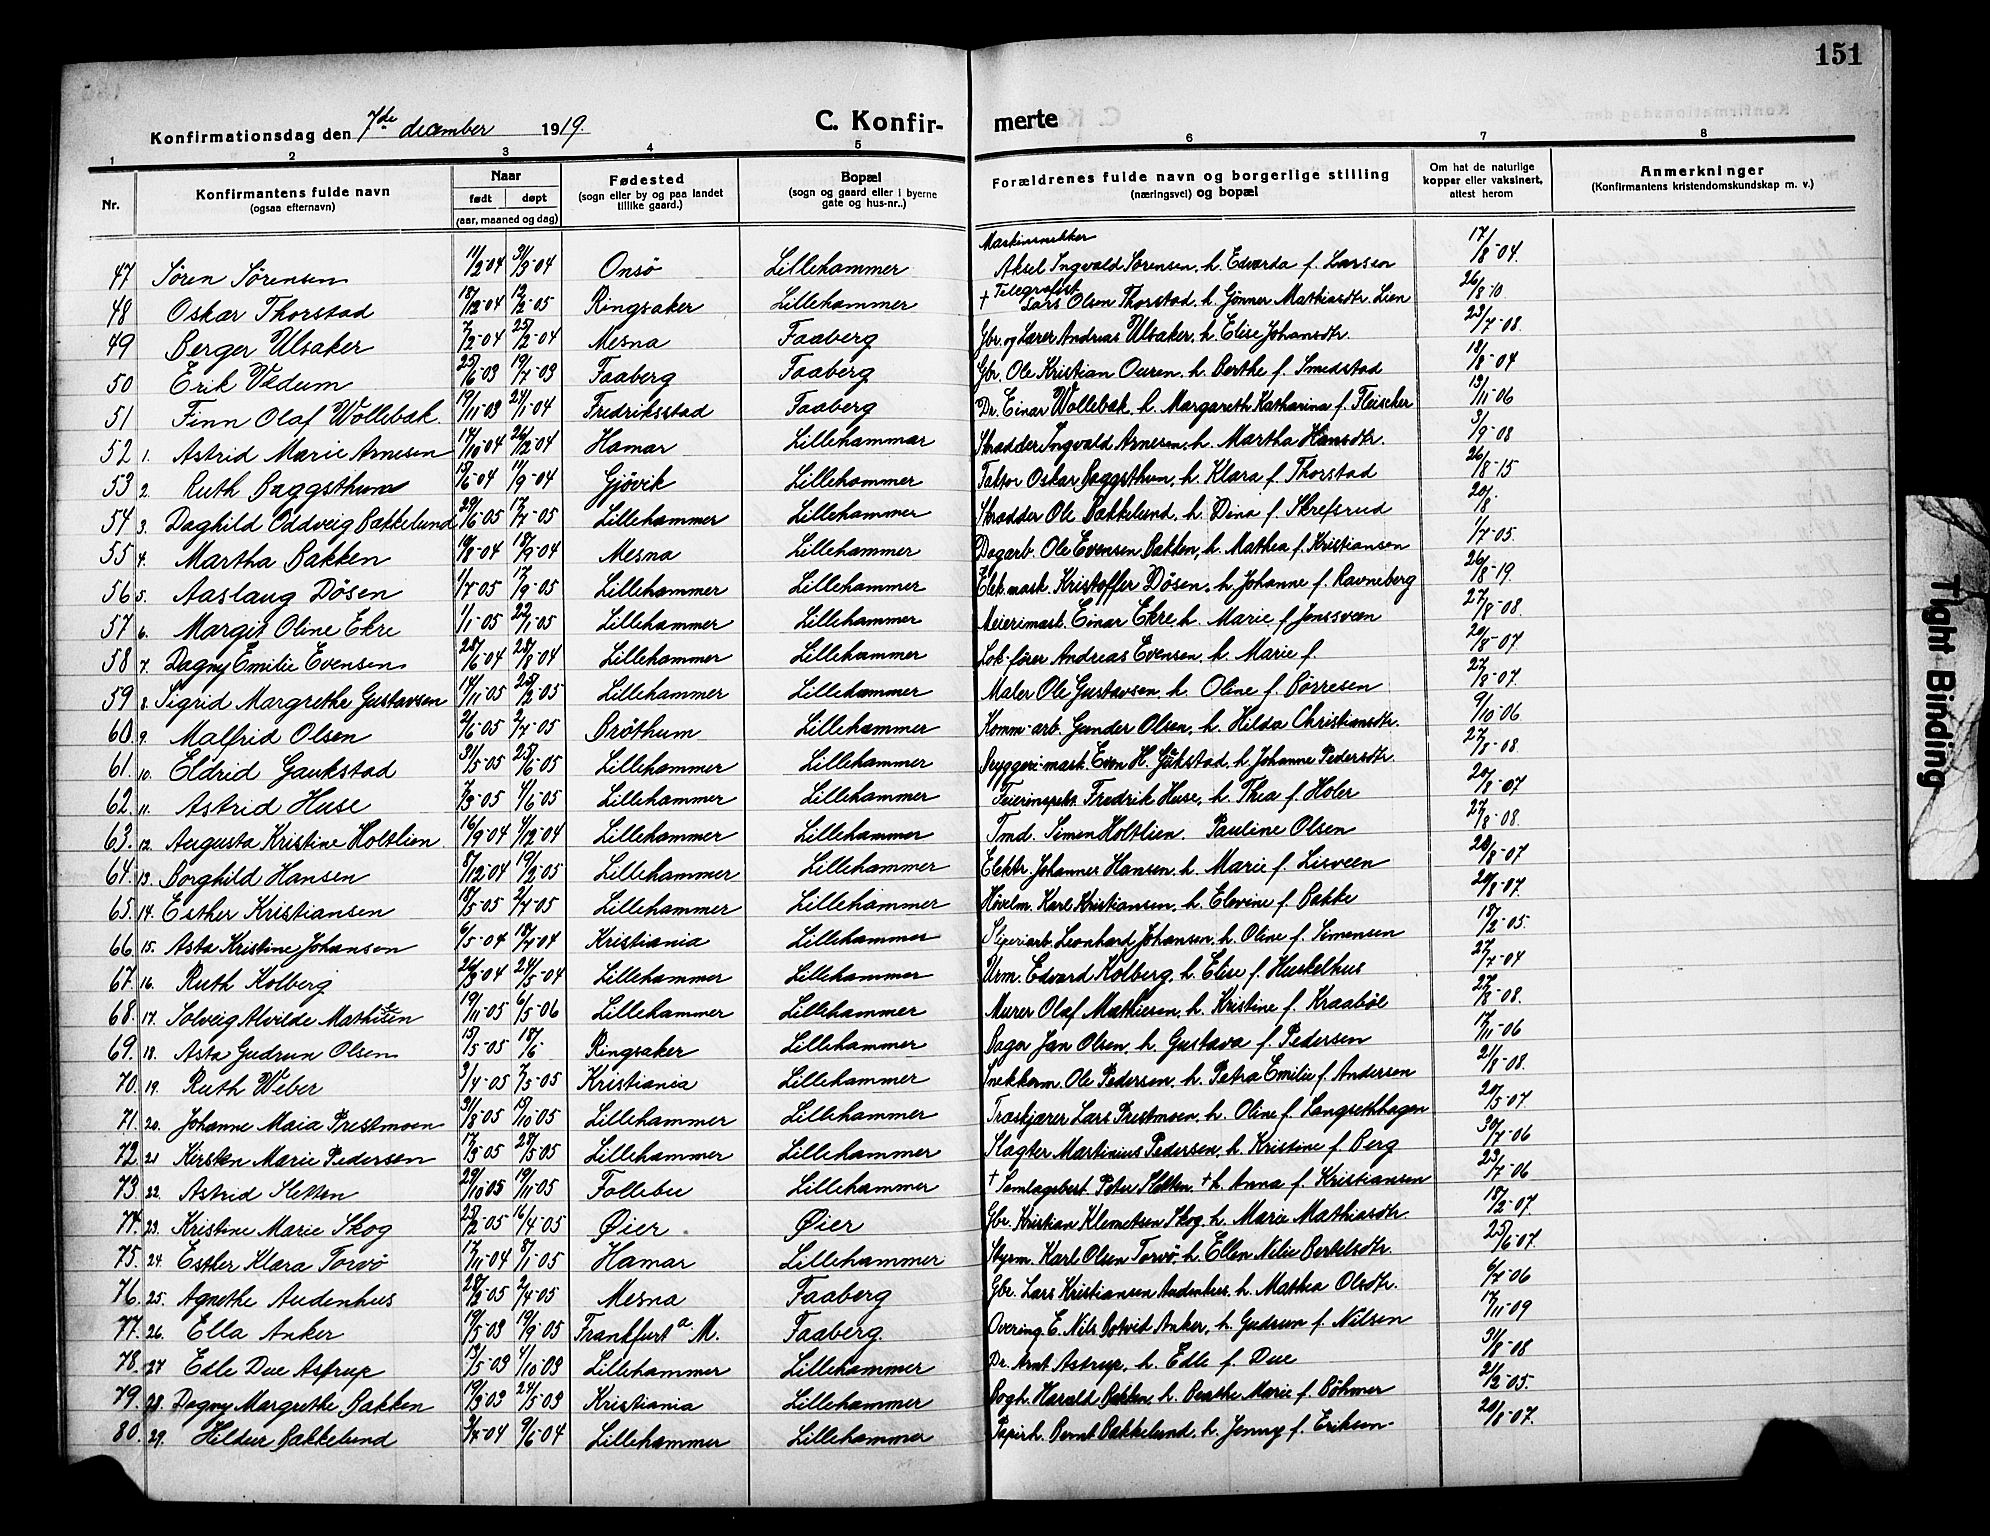 151
Konfirmationsdag den 7de december 1919.
C. Konfirmerte
1 2 3 4 5 6 7 8
Nr. Konfirmantens fulde navn (ogsaa efternavn) Naar født døpt (aar, maaned og dag) Fødested (sogn eller by og paa landet tillike gaard.) Bopæl (sogn og gaard eller i byerne gate og hus-nr..) Forældrenes fulde navn og borgerlige stilling (næringsvei) og bopæl Om hat de naturlige kopper eller vaksinert, attest herom Anmerkninger (Konfirmantens kristendomskundskap m. v.)
47 Søren Sørensen 11/2-04 31/3-04 Onsø Lillehammer Aksel Ingvald Sørensen, h. Edvarda f. Larsen 17/8-04.
48 Oskar Thorstad 18/12-04 12/2-05 Ringsaker Lillehammer † Telegrafist Lars Olsen Thorstad, h. Gønner Mathiasdtr. Lien 26/8-10
49 Berger Ulsaker 7/2-04 25/2-04 Mesna Faaberg Gbr. og Lærer Andreas Ulsaker, h. Elise Johansdtr. 23/7-08.
50 Erik Vedum 25/6-03 19/7-03 Faaberg Faaberg Gbr. Ole Kristian Ouren, h. Berthe f. Smedstad 18/8-04
51 Finn Olaf Wollebæk. 19/11-03 24/1-04 Fredriksstad Faaberg Dr. Einar Wollebæk, h. Margareth Katharina f. Fleischer 13/11-06
52 1. Astrid Marie Arnesen 17/10-04 26/12-04 Hamar Lillehammer Skrædder Ingvald Arnesen, h. Martha Hansdtr. 3/9-08
53 2. Ruth Baggsthun 15/6-04 11/9-04 Gjøvik Lillehammer Faktor Oskar Baggsthun, h. Klara f. Thorstad 26/8-15
54 3. Daghild Oddveig Bakkelund 29/6-05 17/7-05 Lillehammer Lillehammer Skrædder Ole Bakkelund, h. Dina f. Skrefsrud 20/8.
55 4. Martha Bakken 19/8-04 18/9-04 Mesna Lillehammer Dagarb. Ole Evensen Bakken, h. Mathea f. Kristiansen 1/7-05.
56 5. Aaslaug Døsen 1/7-05 17/9-05 Lillehammer Lillehammer Elek. mask. Kristoffer Døsen, h. Johanne f. Ravneberg 26/8-19.
57 6. Margit Oline Ekre 1/1-05 22/1-05 Lillehammer Lillehammer Meierimask. Einar Ekre h. Marie f. Jonssveen 27/8-08.
58 7. Dagny Emilie Evensen 25/6-04 28/8-04 Lillehammer Lillehammer Lok-fører Andreas Evensen, h. Marie f. 20/8-07
59 8. Sigrid Margrethe Gustavsen 14/11-05 25/2-05 Lillehammer Lillehammer Maler Ole Gustavsen, h. Oline f. Børresen 27/8-07.
60 9. Malfrid Olsen 2/6-05 2/7-05 Brøthum Lillehammer Komm-arb. Gunder Olsen, h. Hilda Christiansdtr. 9/10-06
61. 10. Eldrid Gaukstad 31/5-05 25/6-05 Lillehammer Lillehammer Bryggeri-mask. Even H. Gaukstad, h. Johanne Pedersdtr. 27/8-08.
62. 11. Astrid Huse 7/3-05 11/6-05 Lillehammer Lillehammer Feierinspekt. Fredrik Huse, h. Thea f. Holer 20/8-07
63. 12. Augusta Kristine Holtlien 16/9-04 4/12-04 Lillehammer Lillehammer Tmd. Simen Holtlien. Pauline Olsen 27/8-08.
64. 13. Borghild Hansen 8/12-04 19/2-05 Lillehammer Lillehammer Elektr. Johannes Hansen, h. Marie f. Lisveen 20/8-07
65. 14. Esther Kristiansen 18/5-05 2/7-05 Lillehammer Lillehammer Høvelm. Karl Kristiansen, h. Elevine f. Bakke 20/8-07.
66 15. Asta Kristine Johansen 6/5-04 18/7-04 Kristiania Lillehammer Sliperiarb. Leonhard Johansen, h. Oline f. Simensen 18/2-05.
67. 16. Ruth Kolberg 26/3-04 24/5-04 Lillehammer Lillehammer Urm. Edvard Kolberg, h. Elise f. Huskelhus 27/7-04
68. 17. Solveig Alvilde Mathiesen 19/11-05 6/5-06 Lillehammer Lillehammer Murer Olaf Mathiesen, h. Kristine f. Kraabøl 27/8-08.
69. 18. Asta Gudrun Olsen 15/5-05 18/6 Ringsaker Lillehammer Bager Jan Olsen, h. Gustava f. Pedersen 17/11-06
70. 19. Ruth Weber 3/4-05 7/5-05 Kristiania Lillehammer Snekkerm. Ole Pedersen, h. Petra Emilie f. Andersen 21/8-08.
71. 20. Johanne Maia Prestmoen 31/8-05 15/10-05 Lillehammer Lillehammer Træskjærer Lars Prestmoen, h. Oline f. Langsethhagen 20/5-07
72 21 Kirsten Marie Pedersen 17/3-05 28/5-05 Lillehammer Lillehammer Slagter Martinius Pedersen, h. Kristine f. Berg 30/7-06
73. 22. Astrid Sletten 29/10-05 19/11-05 Follebu Lillehammer † Samlagsbest. Peter Sletten, † h. Anna f. Kristiansen 23/7-06
74. 23. Kristine Marie Skog 25/2-05 16/4-05 Øier. Øier Gbr. Kristian Klemetsen Skog, h. Marie Mathiasdtr. 18/2-07.
75. 24. Esther Klara Torvø 17/11-04 8/1-05 Hamar Lillehammer Styrm. Karl Olsen Torvø, h. Ellen Nilie Bertelsdtr. 25/6-07.
76. 25. Agnethe Audenhus 28/2-05 2/4-05 Mesna Faaberg Gbr. Lars Kristiansen Audenhus, h. Mathea Olsdtr. 6/7-06
77. 26. Ella Anker 19/5-03 19/9-05 Frankfurt a M. Faaberg. Overing. E. Nils Botvid Anker, h. Gudrun f. Nilsen 17/11-09
78. 27 Edle Due Astrup 13/5-03 4/10-03 Lillehammer Lillehammer Dr. Arnt Astrup, h. Edle f. Due 31/8-08
79. 28. Dagny Margrethe Bakken 19/3-03 24/5-03 Kristiania Lillehammer Bogh. Harald Bakken, h. Beathe Marie f. Bøhmer 21/2-05.
80. 29. Hildur Bakkelund 3/4-04 9/6-04 Lillehammer Lillehammer Papirh. Bernt Bakkelund, h. Jenny f. Eriksen 20/8-07.
Tight Binding